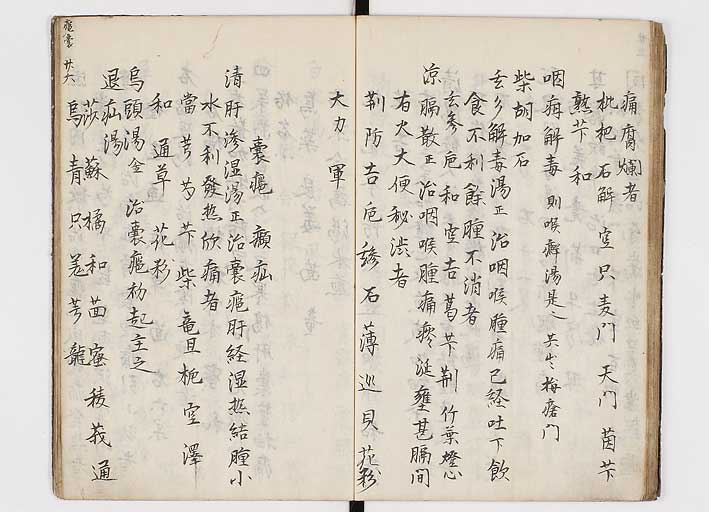 痛腐爛者
枇杷 石解 空 只 麦門 天門 茵 芐
熟芐 和
咽痛解毒 則喉癬湯是之 共出梅瘡門
柴胡加石
玄参解毒湯 正 治咽喉腫痛已経吐下飲
食不利餘腫不消者
玄参 卮 和 空 吉 葛 芐 荆 竹葉 燈心
涼膈散 正 治咽喉腫痛 痰涎壅甚膈間
有火大便秘渋者
荆 防 吉 卮 石 薄 貝 花粉
大力 軍
嚢癰 癲疝
清肝滲湿湯 正 治嚢癰肝経湿热結腫小
水不利發热焮痛者
當 芎 芍 芐 柴 竜旦 梔 空 澤
和 通草 花粉
烏頭湯 金 治嚢癰初起主之
退疝湯
茨 蘇 橘 和 茴 稜 莪 通
烏 青 只 羌 芩 龍
嚢癰
廿六